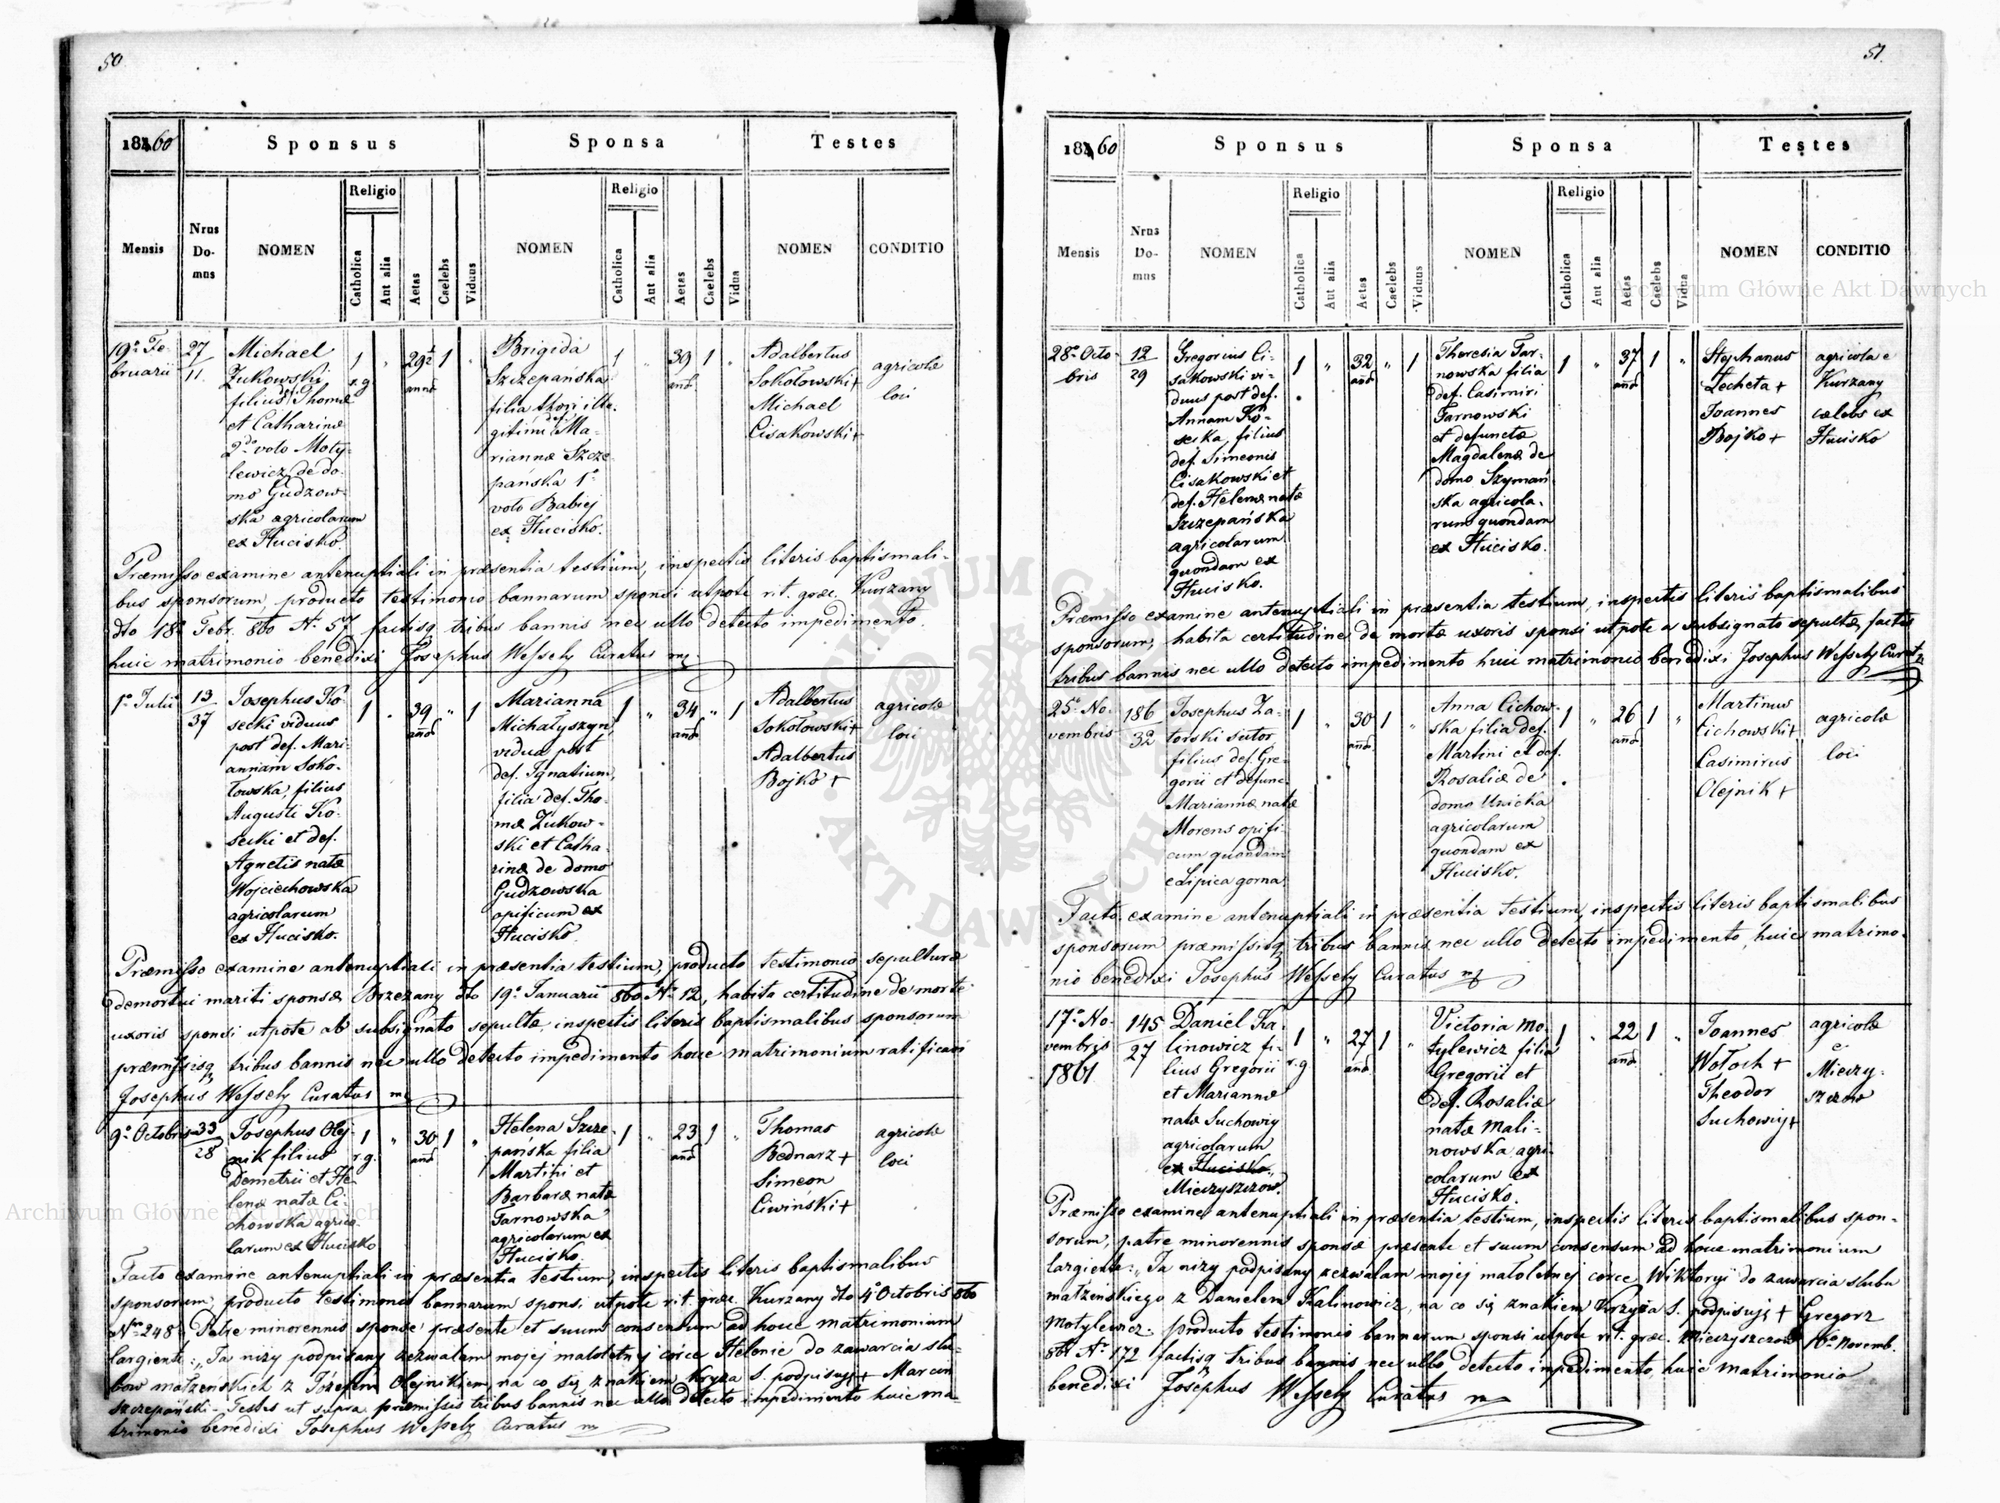 50
1860
Sponsus
Sponsa
Testes
Mensis
Nrus Domus
NOMEN
Religio
Catholica
Aut alia
Aetas
Caelebs
Viduus
NOMEN
Religio
Catholica
Aut alia
Aetas
Caelebs
Vidua
NOMEN
CONDITIO
19a Fe-
bruarii
27
11.
Michael
Zukowski
filius def Thomæ
et Catharinæ
2do voto Moty-
lewicz de do-
mo Gudzow-
ska agricolarum
ex Hucisko.
1
r.g
"
29 1/2
annor
1
"
Brigida
Szczepańska
filia thori ille-
gitimi def Ma-
riannæ Szcze-
pańska 1o
voto Babiej
ex Hucisko.
1
"
39
ann
1
"
Adalbertus
Sokołowski +
Michael
Cisakowski +
agricolæ
loci
Præmisso examine antenuptiali in præsentia testium, inspectis literis baptismali-
bus sponsorum, producto testimonio bannorum sponsi utpote rit. græc. Kurzany
dto 18a Febr. 860 No 57 factisq tribus bannis nec ullo detecto impedimento
huic matrimonio benedixi Josephus Wessely Curatus mp
1a Julii
13
37
Josephus Ko-
secki viduus
post def. Mari-
annam Soko-
łowska, filius
Augusti Ko-
secki et def.
Agnetis natæ
Wojciechowska
agricolarum
ex Hucisko.
1
"
39
annor
"
1
Marianna
Michałyszyn
vidua post
def. Ignatium,
filia def. Tho-
mæ Zukow-
ski et Catha-
rinæ de domo
Gudzowska
opificum ex
Hucisko.
1
"
34
annor
"
1
Adalbertus
Sokołowski +
Adalbertus
Bojko +
agricolæ
loci
Præmisso examine antenuptiali in præsentia testium, producto testimonio sepulturæ
demortui mariti sponsæ Brzeżany dto 19a Januarii 860 No 12, habita certitudine de morte
uxoris sponsi utpote ab subsignato sepultæ, inspectis literis baptismalibus sponsorum
præmissisq tribus bannis nec ullo detecto impedimento hoce matrimonium ratificavi
Josephus Wessely Curatus mp
9a Octobris
33
28
Josephus Olej-
nik filius
Demetrii et He-
lenæ natæ Ci-
chowska agrico-
larum ex Hucisko
1
r.g.
"
30
ann
1
"
Helena Szcze-
pańska filia
Martini et
Barbaræ natæ
Tarnowska
agricolarum ex
Hucisko.
1
"
23
ann
1
"
Thomas
Bednarz +
Simeon
Ciwiński +
agricolæ
loci
Facto examine antenuptiali in præsentia testium, inspectis literis baptismalibus
sponsorum, producto testimonio bannorum sponsi utpote rit. græc. Kurzany dto 4a Octobris 860
Nro 248, Patre minorennis sponsæ præsente et suum consensum ad hoce matrimonium
largiente: "Ja niży podpisany zezwalam mojej małoletny córce Helenie do zawarcia slu-
bów małżeńskich z Józefem Olejnikiem, na co się znakiem Krzyża S. podpisuję + Marcin
Szczepański - Testes ut supra præmissis tribus bannis nec ullo detecto impedimento huic ma-
trimonio benedixi Josephus Wessely Curatus mp
51.
1860
Sponsus
Sponsa
Testes
Mensis
Nrus Domus
NOMEN
Religio
Catholica
Aut alia
Aetas
Caelebs
Viduus
NOMEN
Religio
Catholica
Aut alia
Aetas
Caelebs
Vidua
NOMEN
CONDITIO
28a Octo-
bris
12
29
Gregorius Ci-
sakowski vi-
duus post def.
Annam Ko-
seska, filius
def. Simeonis
Cisakowski et
def. Helenæ natæ
Szczepańska
agricolarum
quondam ex
Hucisko.
1
"
32
annor
"
1
Theresia Tar-
nowska filia
def. Casimiri
Tarnowski
et defunctæ
Magdalenæ de
domo Szymań-
ska agricola-
rum quondam
ex Hucisko.
1
"
37
annor
1
"
Stephanus
Lecheta +
Joannes
Bojko +
agricola e
Kurzany
cælebs ex
Hucisko
Præmisso examine antenuptiali in præsentia testium, inspectis literis baptismalibus
sponsorum, habita certitudine de morte uxoris sponsi utpote a subsignato sepultæ, factis
tribus bannis nec ullo detecto impedimento huic matrimonio benedixi Josephus Wessely Curat
25a No-
vembris
186
32
Josephus Za-
torski sutor
filius def. Gre-
gorii et defunc.
Mariannæ natæ
Morens opifi-
cum quondam
e Lipica gorna
1
"
30
annor
1
"
Anna Cichow-
ska filia def.
Martini et def.
Rosaliæ de
domo Unicka
agricolarum
quondam ex
Hucisko.
1
"
26
annor
1
"
Martinus
Cichowski +
Casimirus
Olejnik +
agricolæ
loci
Facto examine antenuptiali in præsentia testium, inspectis literis baptismalibus
sponsorum præmissisq tribus bannis nec ullo detecto impedimento, huic matrimo-
nio benedixi Josephus Wessely Curatus mp
17a No-
vembris
1861
145
27
Daniel Ka-
linowicz fi-
lius Gregorii
et Mariannæ
natæ Suchowiy
agricolarum
ex Hucisko
Mieczyszczow.
1
r.g
"
27
annor
1
"
Victoria Mo-
tylewicz filia
Gregorii et
def. Rosaliæ
natæ Mali-
nowska agri-
colarum ex
Hucisko.
1
"
22
annor
1
"
Joannes
Wołoch +
Theodor
Suchowiy +
agricolæ
e
Mieczy-
szczow
Præmisso examine antenuptiali in præsentia testium, inspectis literis baptismalibus spon-
sorum, patre minorennis sponsæ præsente et suum consensum ad hoce matrimonium
largiente: "Ja niży podpisany zezwalam mojej małoletnej córce Wiktoryi do zawarcia slubu
małżeńskiego z Danielem Kalinowicz, na co się znakiem Krzyża S. podpisuję + Gregorz
Motylewicz. Producto testimonio bannorum sponsi utpote rit. græc. Mieczyszczow 16a Novemb.
861 No 172 factisq tribus bannis nec ullo detecto impedimento, huic matrimonio
benedixi Josephus Wessely Curatus mp
Archiwum Główne Akt Dawnych
Archiwum Główne Akt Dawnych
ARCHIWUM GŁÓWNE AKT DAWNYCH